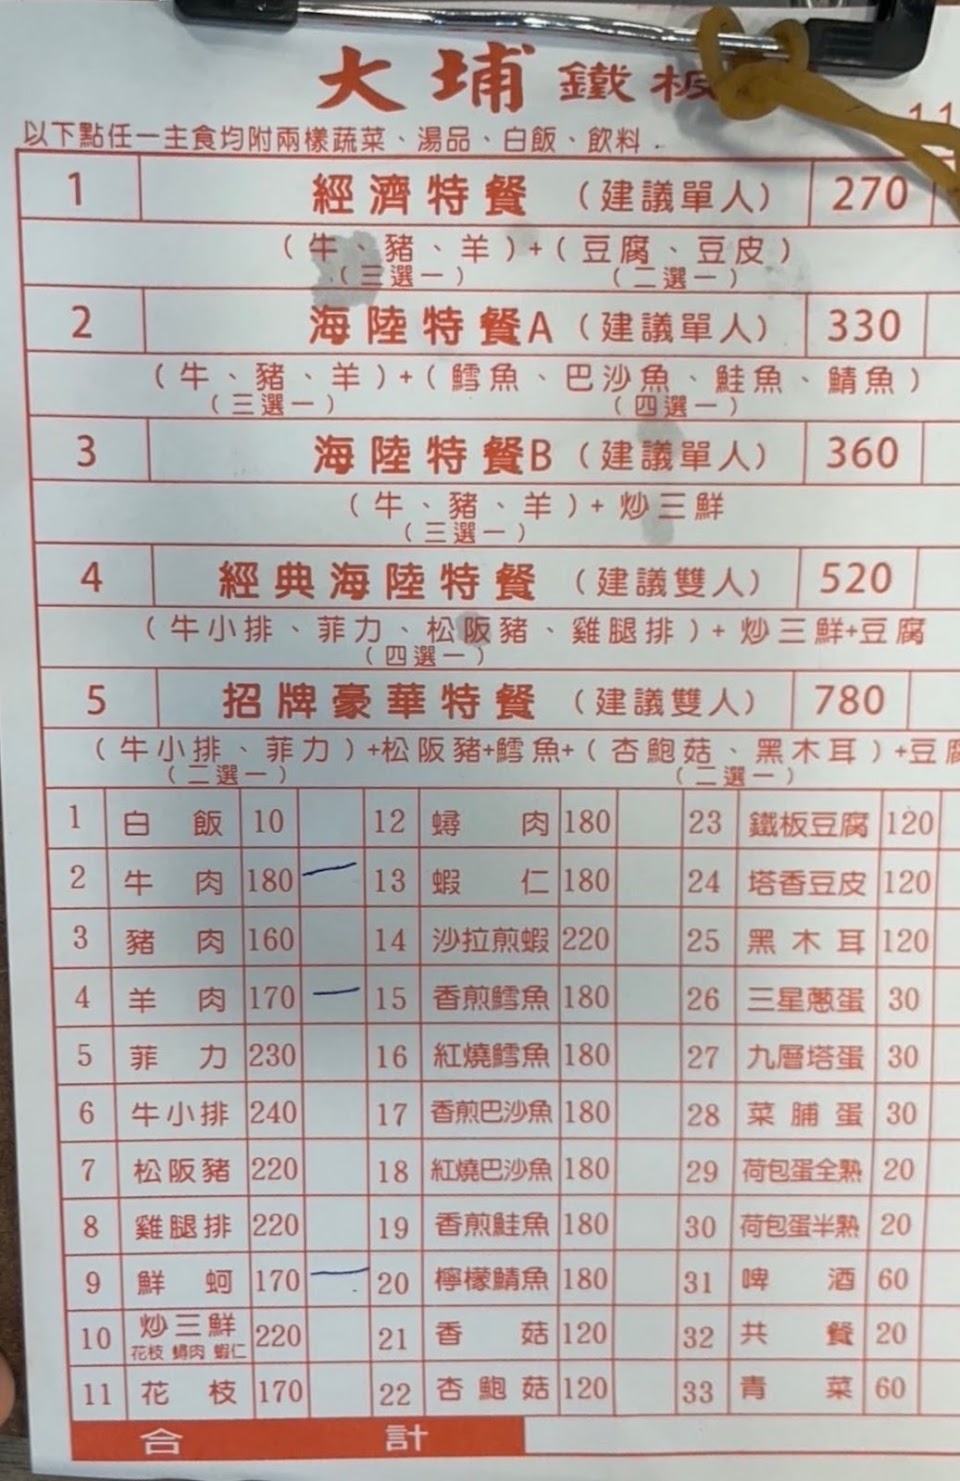 大埔鐵板
11
以下點任一主食均附兩樣蔬菜、湯品、白飯、飲料.
1 經濟特餐 (建議單人) 270
(牛、豬、羊)+(豆腐、豆皮)
(三選一) (二選一)
2 海陸特餐A (建議單人) 330
(牛、豬、羊)+(鱈魚、巴沙魚、鮭魚、鯖魚)
(三選一) (四選一)
3 海陸特餐B (建議單人) 360
(牛、豬、羊)+炒三鮮
(三選一)
4 經典海陸特餐 (建議雙人) 520
(牛小排、菲力、松阪豬、雞腿排)+炒三鮮+豆腐
(四選一)
5 招牌豪華特餐 (建議雙人) 780
(牛小排、菲力)+松阪豬+鱈魚+(杏鮑菇、黑木耳)+豆腐
(二選一) (二選一)
1 白飯 10 12 蟳肉 180 23 鐵板豆腐 120
2 牛肉 180 一 13 蝦仁 180 24 塔香豆皮 120
3 豬肉 160 14 沙拉煎蝦 220 25 黑木耳 120
4 羊肉 170 一 15 香煎鱈魚 180 26 三星蔥蛋 30
5 菲力 230 16 紅燒鱈魚 180 27 九層塔蛋 30
6 牛小排 240 17 香煎巴沙魚 180 28 菜脯蛋 30
7 松阪豬 220 18 紅燒巴沙魚 180 29 荷包蛋全熟 20
8 雞腿排 220 19 香煎鮭魚 180 30 荷包蛋半熟 20
9 鮮蚵 170 一 20 檸檬鯖魚 180 31 啤酒 60
10 炒三鮮 220 21 香菇 120 32 共餐 20
花枝 蟳肉 蝦仁
11 花枝 170 22 杏鮑菇 120 33 青菜 60
合計